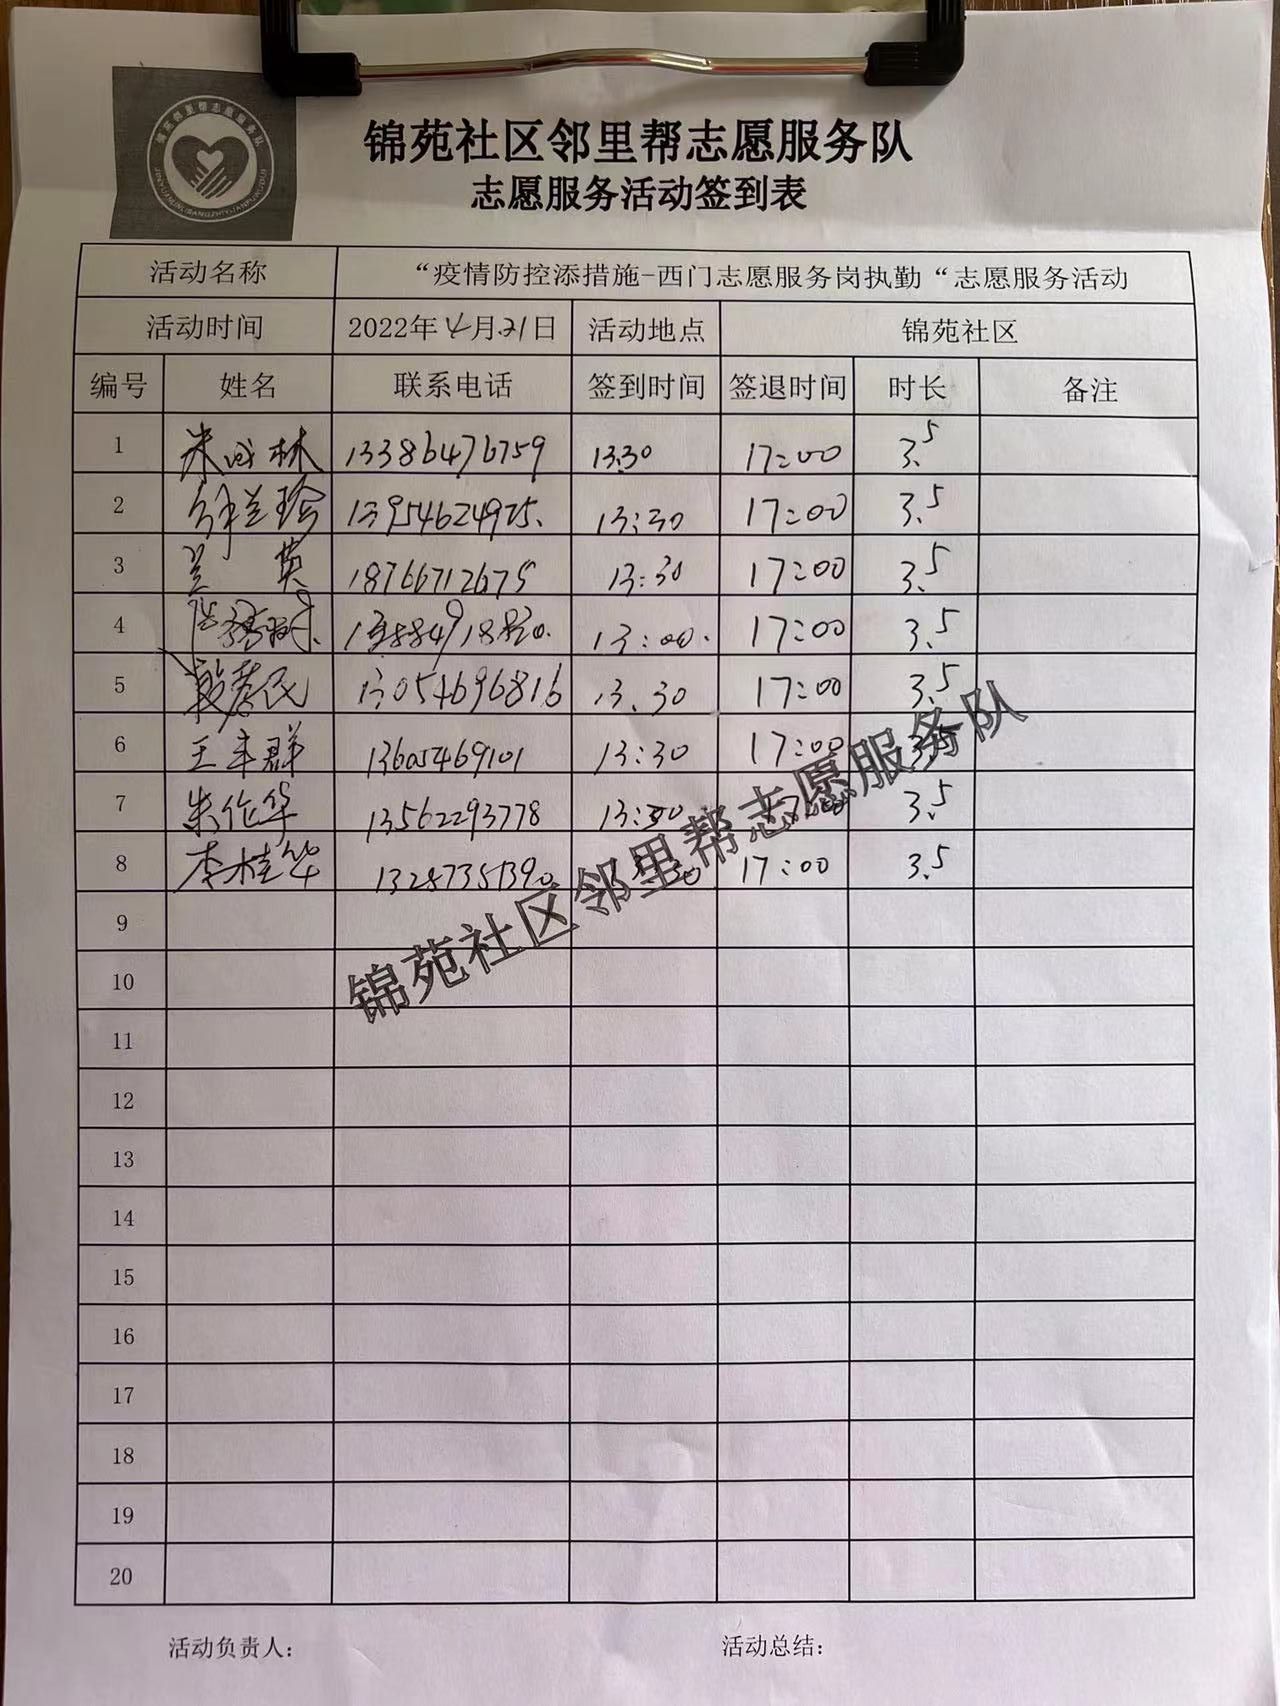 锦苑社区邻里帮志愿服务队
志愿服务活动签到表
活动名称 “疫情防控添措施-西门志愿服务岗执勤“志愿服务活动
活动时间 2022年4月21日 活动地点 锦苑社区
编号 姓名 联系电话 签到时间 签退时间 时长 备注
1 朱成林 13386476759 13:30 17:00 3.5
2 兰玲 13954624925. 13:30 17:00 3.5
3 兰英 18766712675 13:30 17:00 3.5
4 13:00. 17:00 3.5
5 殷孝民 13054696816 13.30 17:00 3.5
6 王丰群 13605469101 13:30 17:00 3.5
7 朱作华 13562293778 13:30 17:00 3.5
8 李桂华 13287351390 13:30 17:00 3.5
9
10
11
12
13
14
15
16
17
18
19
20
活动负责人： 活动总结：
锦苑社区邻里帮志愿服务队